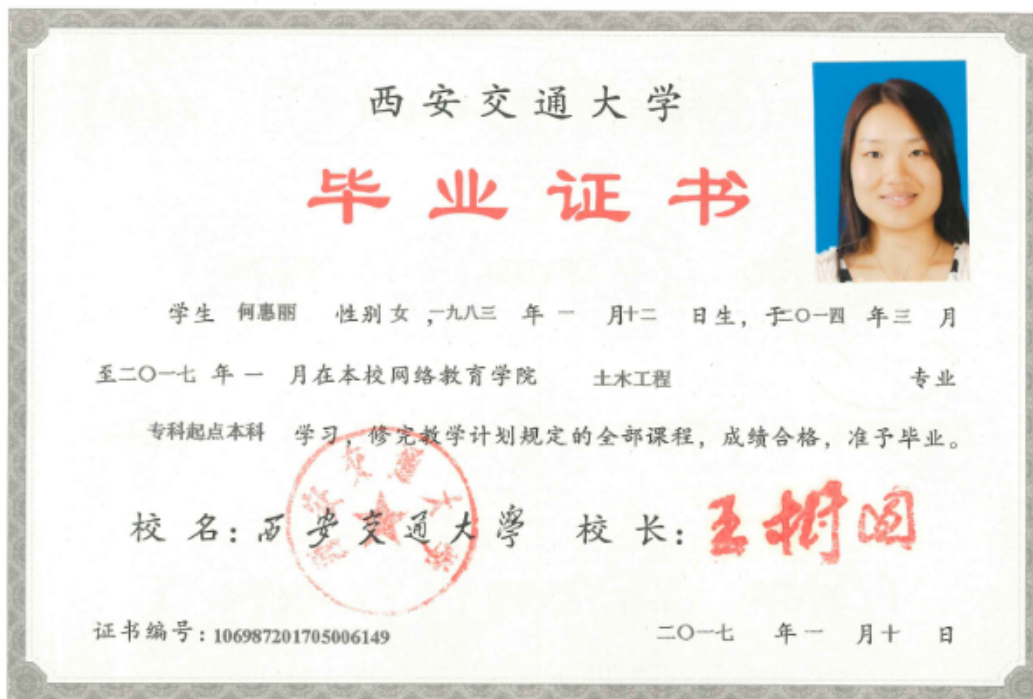 西安交通大学
毕业证书
学生 何惠丽 性别 女 ,一九八三 年 一 月十二 日生，于二〇一四 年 三 月
至二〇一七 年 一 月在本校网络教育学院 土木工程 专业
专科起点本科 学习，修完教学计划规定的全部课程，成绩合格，准予毕业。
校 名：西安交通大學 校 长：王树国
证书编号：106987201705006149 二〇一七 年 一 月 十 日